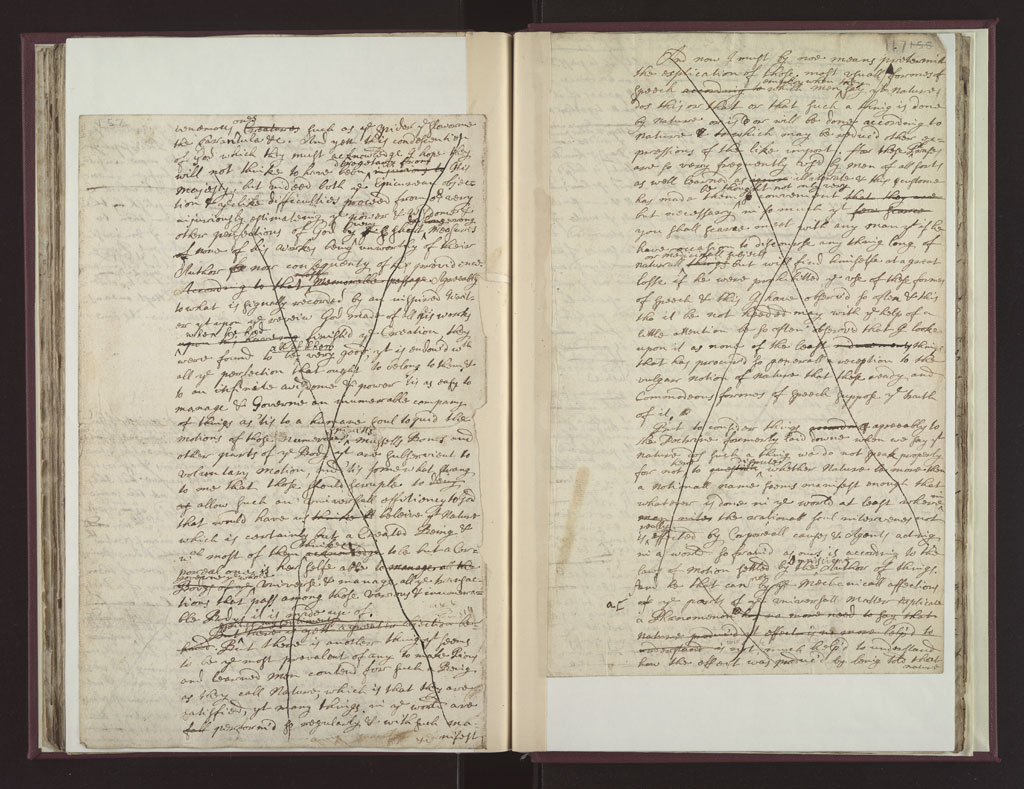 venemous ones Creatures such as ye Spider ye
the Tarantula &c. And yett this condescention
of God which they must acknowledge I hope they
will not thinke to have being derogatory from injurious to His
Majesty, but indeed both ye Epicurean objec-
tion & ye like difficulties proceed from of very
injuriously estimateing ye power & ye
other perfections of God by
none of his workes being unworthy of theire
Author nor consequently of his providence
According to that Memorable passage Agreeably
to what is signally recorded by an inspired writ-
er yt upon ye review God made of all his works
when hee had finish'd ye Creation they
were found to all of them be very good yt is endow'd with
all ye perfection that ought to belong to them &
to an infinite wisdome & power tis as easy to
manage & Governe an inumerable company
of things as 'tis to a humane soul to guid the
motions of those numerous Mussells Bones and
other parts of ye Body yt are subservient to
voluntary motion and tis somewhat strang
to me that those should scruple to deny
allow such an universall efficiency to God
that would have us thinke beleive yt Nature
which is certainly but a Created Being &
wch most of them thinke acknowledge to be but a Cor-
poreal one is her selfe able to manage all the
universe & manage all ye transac-
tions that pass among those various & inumera-
ble Bodys it is made up of.
But there is yett a
But there is another thing yt seems
to be ye most prevalent of any to make Pious
and Learned men contend for such a Being
as they call Nature, which is that they are
satisfied, yt many things in ye world are
perform'd so regularly & with such ma-
nifest
And now I must by noe means pretermitt
the explication of those most usuall formes of
speech according to which men say yt Nature
dos this or that or that such a thing is done
by Nature or is or will be done according to
Nature & to which may be reduc'd other ex-
pressions of the like import. For these phrases
are so very frequently us'd by men of all sorts
as well learned as illiterate & this custome
has made them be thought not only very convenient that they are
but necessary in so much yt
you shall scarce meet with any man if he
have occasion to discourse any thing long of
naturall things or medicinall subjects but will find himselfe at a great
losse if he were prohibitted ye use of those formes
of speech & this I have observ'd so often & this
tho it be not heeded may with ye help of a
little attention be so often observed that I looke
upon it as none of the least things
that has procur'd so generall a reception to the
vulgar notion of Nature that these ready and
Commodious formes of speech suppose ye truth
of it.
But to consider things agreeably to
the Doctrine formerly laid downe when we say yt
nature dos such a thing we do not speak properly
for not to here dispute question whether Nature be more then
a Notionall name seems manifest enough that
whatever is done in ye world at least wherein
the rationall soul intervenes not
is really effected by Corporeall causes & Agents acting
in a world so fram'd as ours is according to the
laws of Motion setled by the Omniscient Author of things.
And he that can by ye Mechanicall affections
of ye parts of ye universall Matter explicate
a Phænomenon has no more need to say that
Nature
understand is not much help'd to understand
how the effect was produc'd by being told that
nature